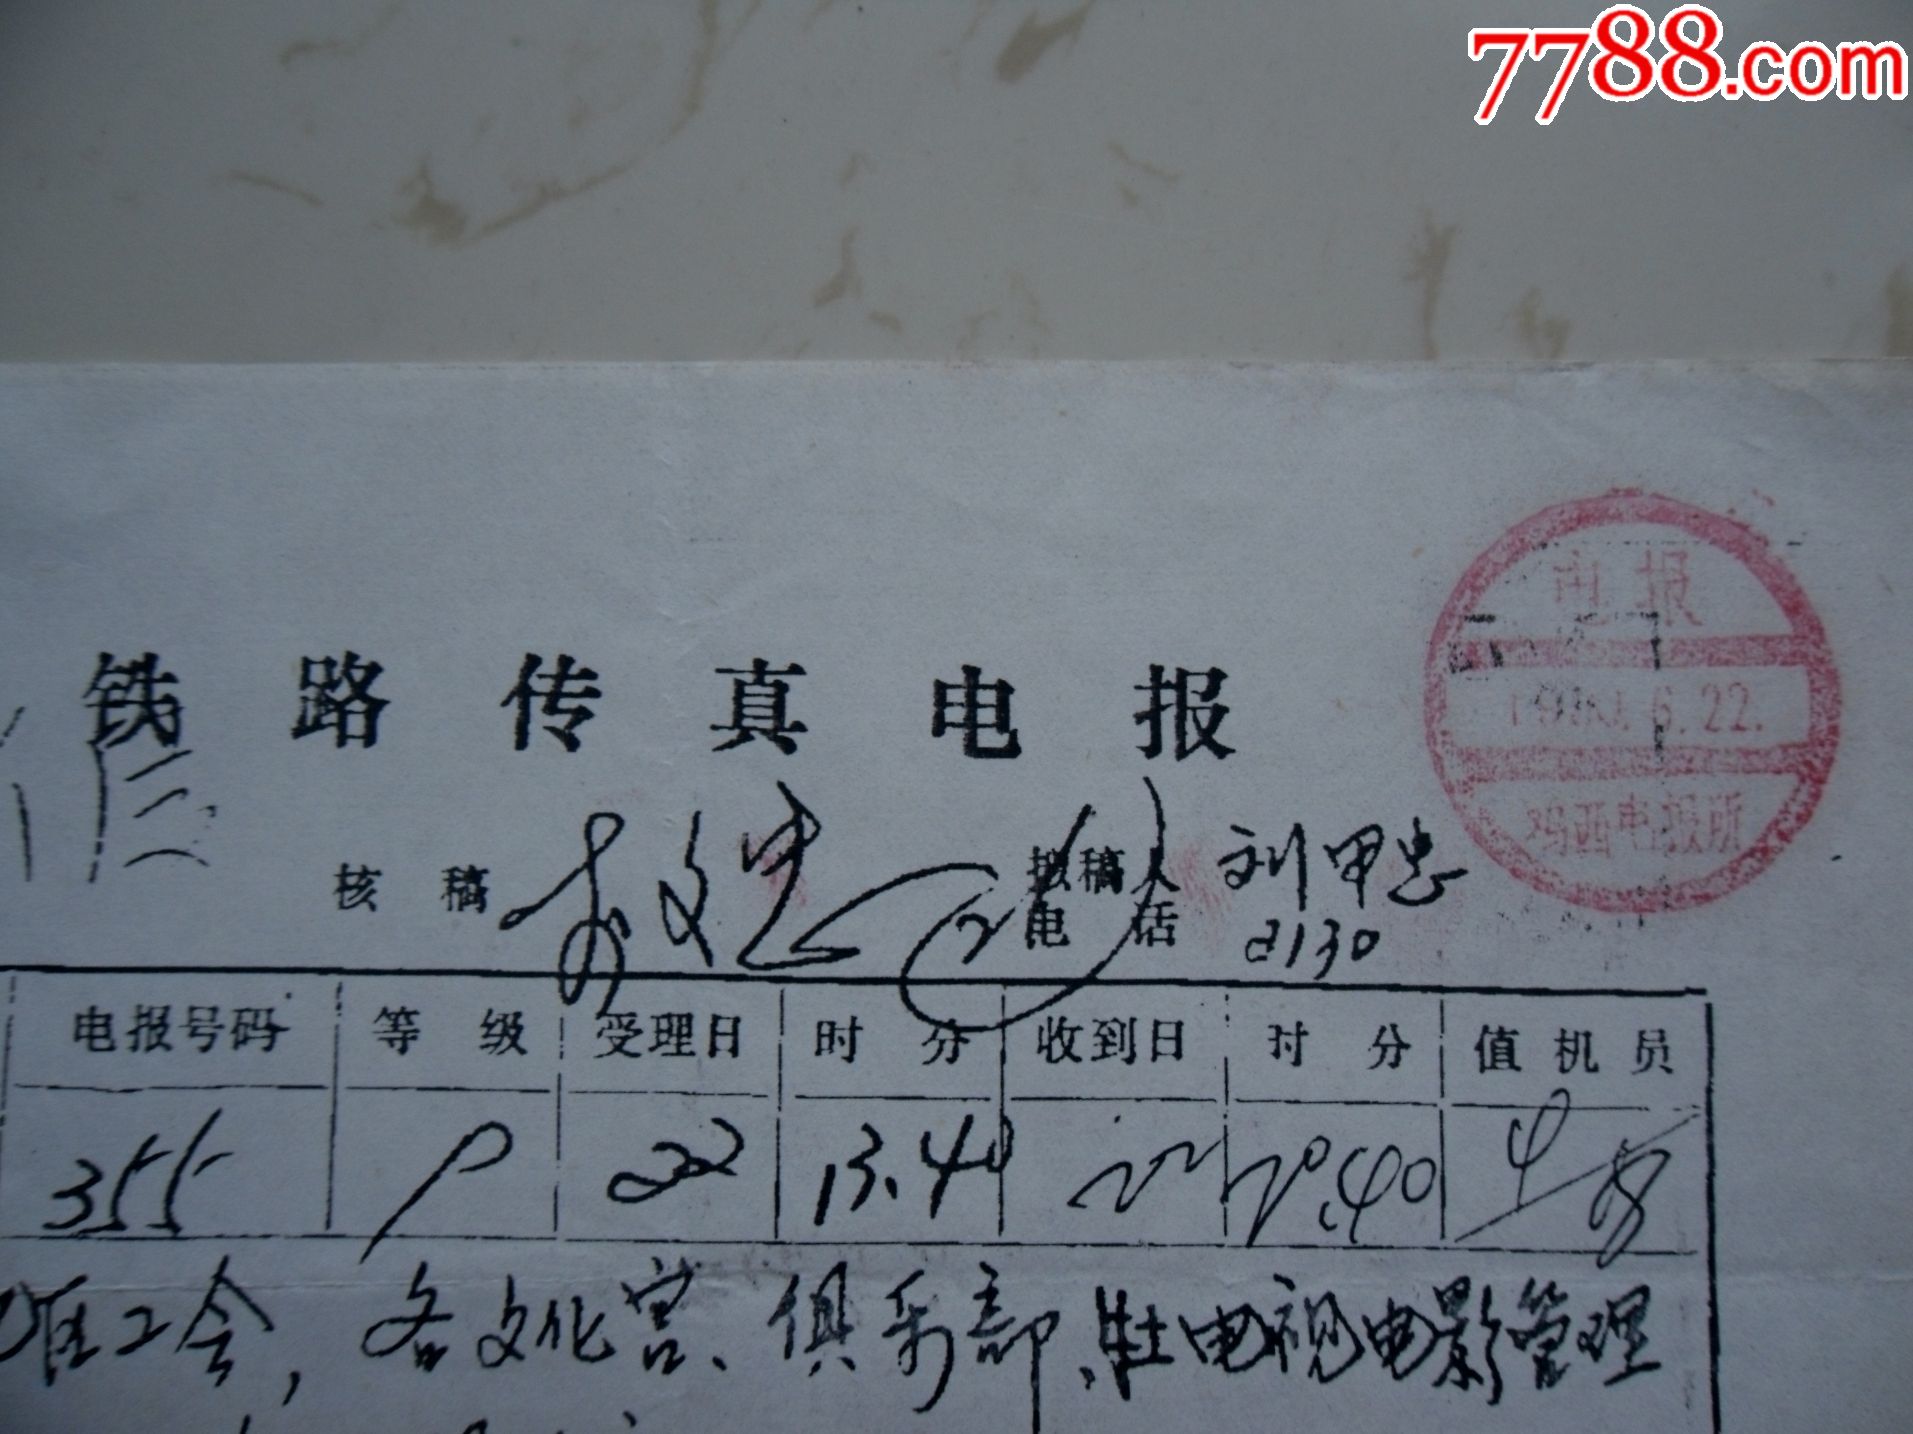 7788.com
电报
6.22.
鸡西电报所
铁路传真电报
核稿
拟稿人 刘甲忠
电话 2130
电报号码 等级 受理日 时分 收到日 时分 值机员
355 P 22 13.40 22 20.40
区工会，各文化宫、俱乐部、驻电视电影管理